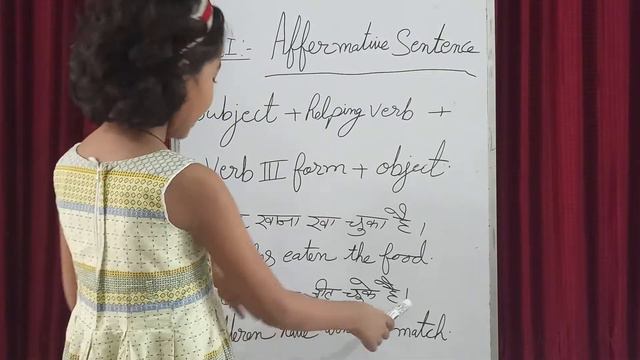 I:- Affermative Sentence
Subject + helping verb +
verb III form + object.
खाना खा चुका है।
eaten the food.
जीत चुके है।
have match.